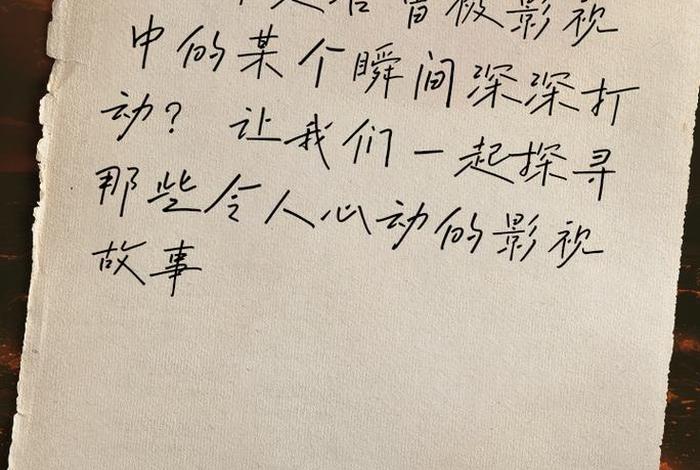 是否曾被影视
中的某个瞬间深深打
动？ 让我们一起探寻
那些令人心动的影视
故事